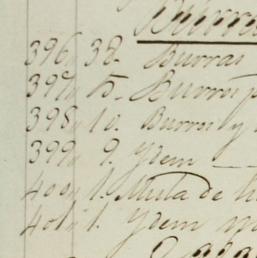 396 38. Burras
397 15. Burros p
398 10. Burros y
399 9. Ytem
400 1. Mula de
401 1. Ytem